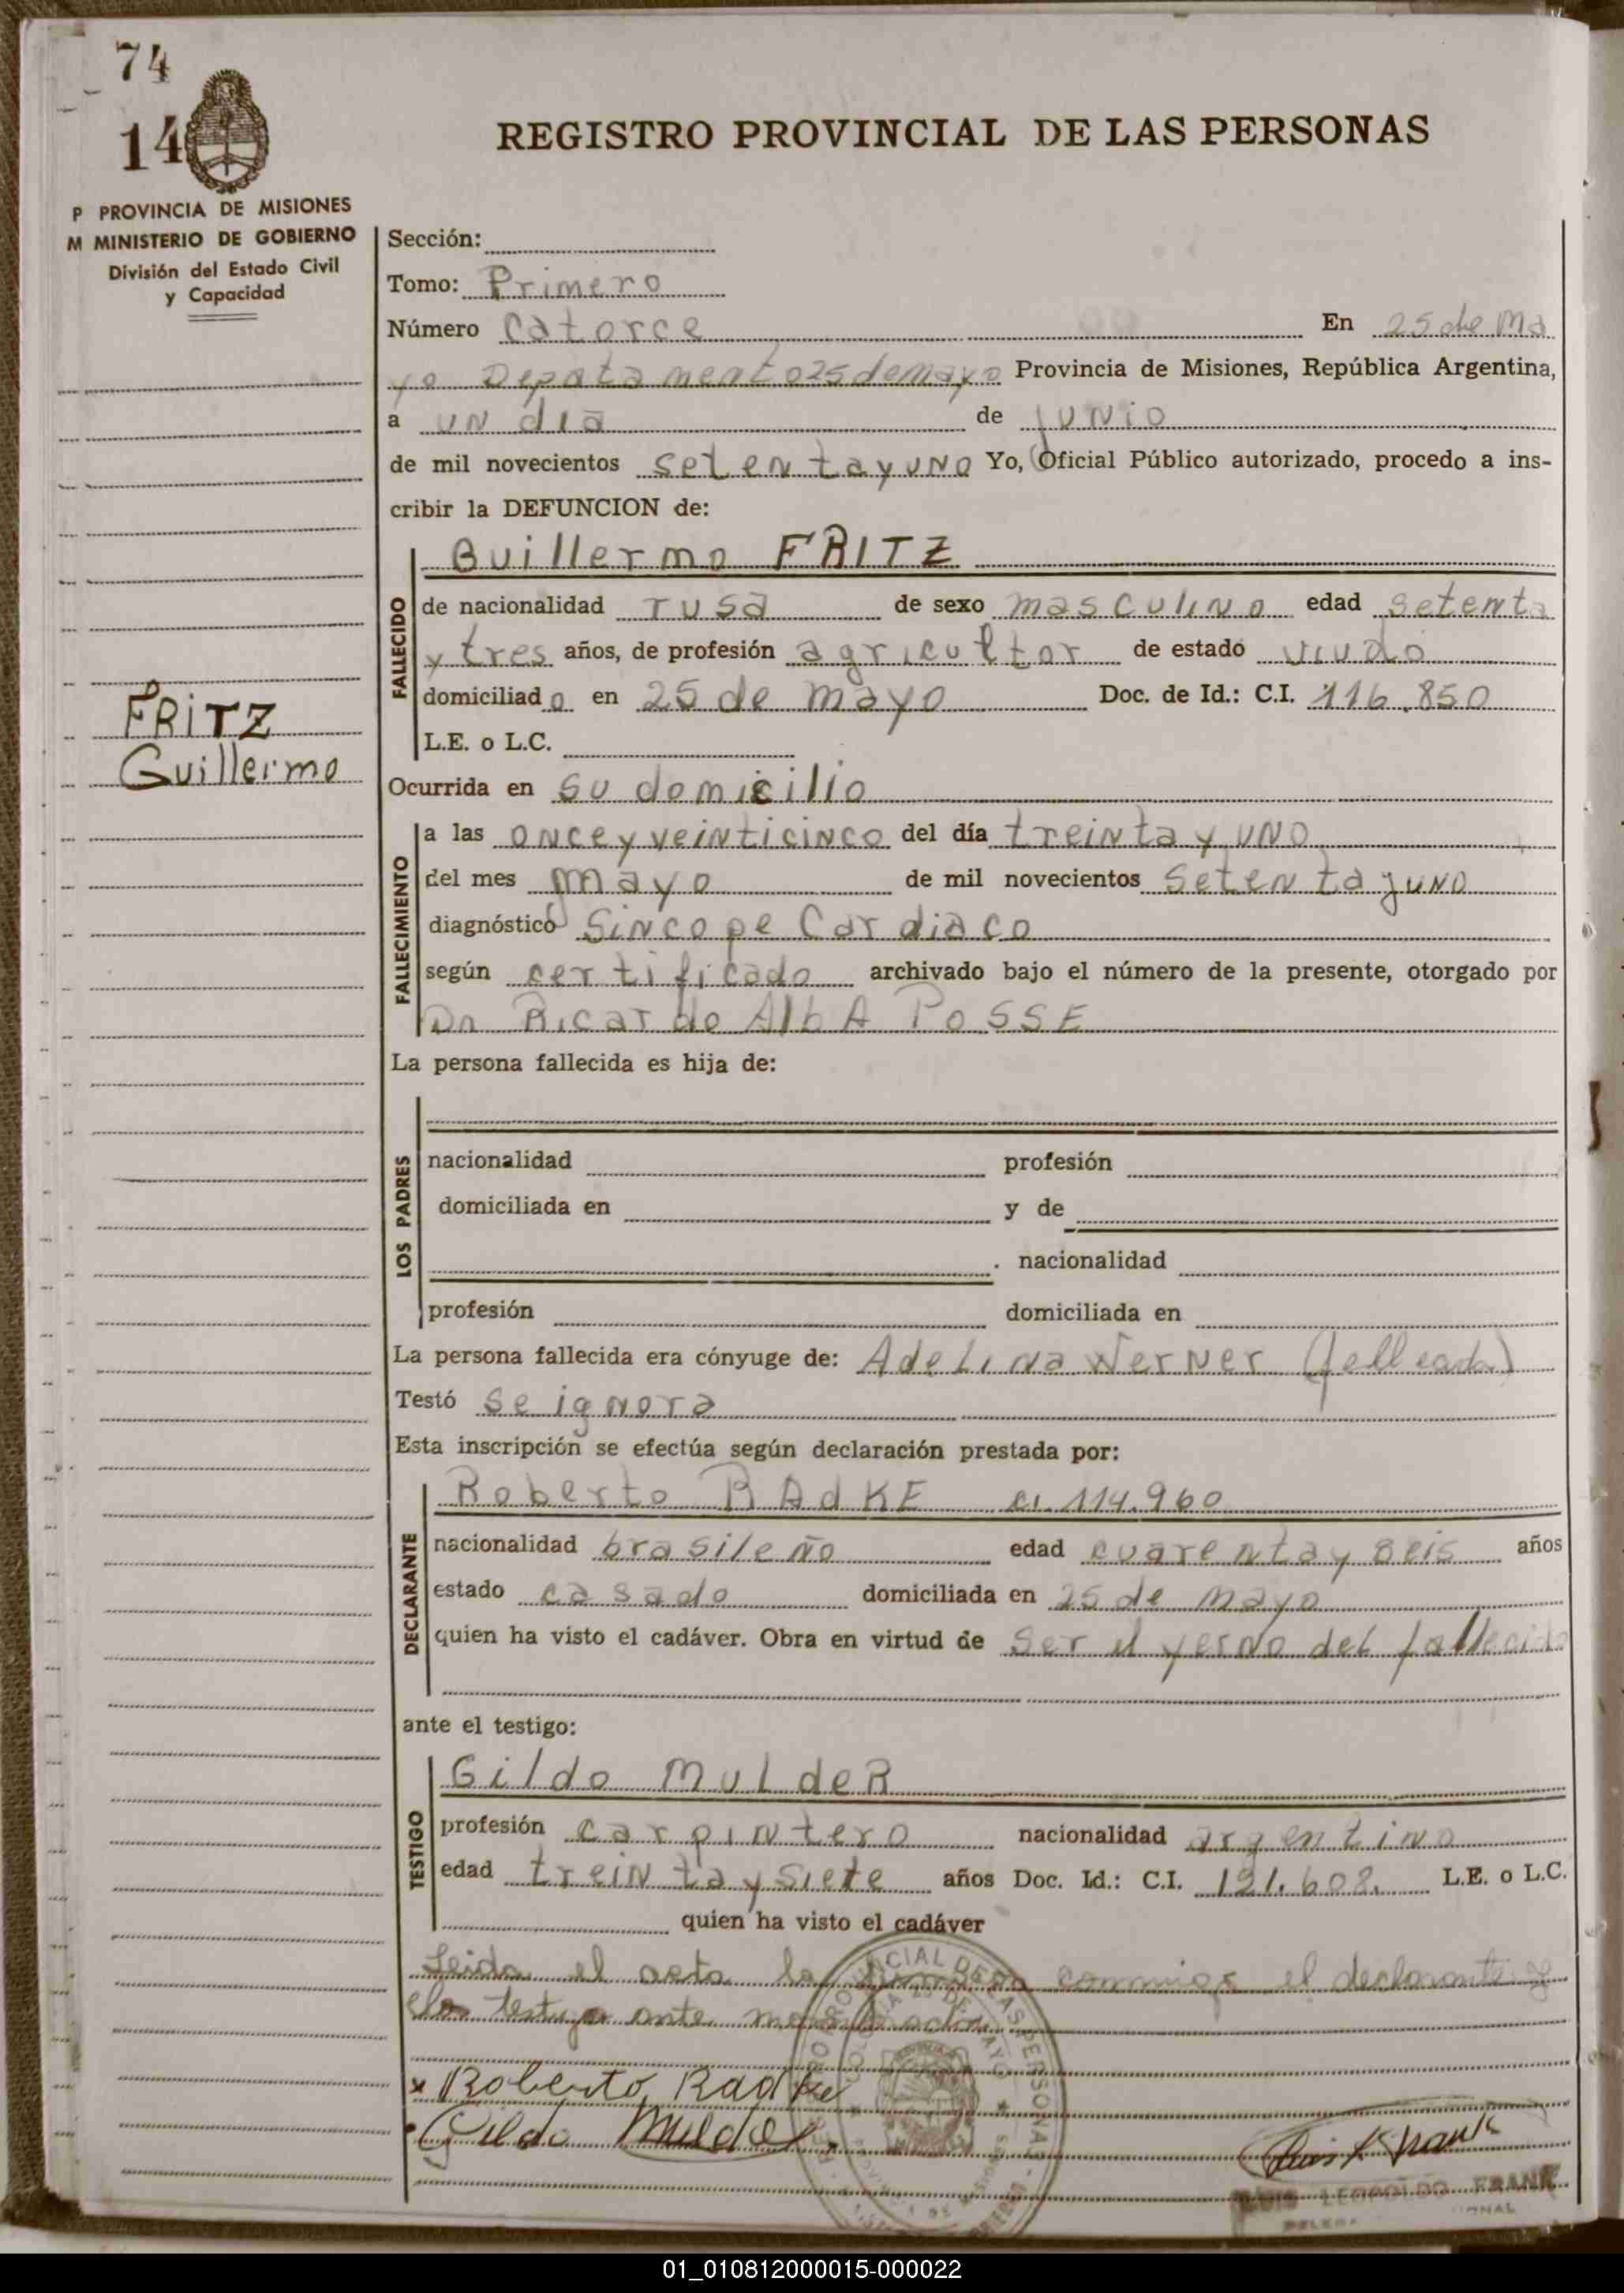 74
14
REGISTRO PROVINCIAL DE LAS PERSONAS
P PROVINCIA DE MISIONES
M MINISTERIO DE GOBIERNO
División del Estado Civil
y Capacidad
FRITZ
Guillermo
Sección:
Tomo: Primero
Número Catorce En 25 de Ma
yo Depatamento 25 de mayo Provincia de Misiones, República Argentina,
a un dia de junio
de mil novecientos setenta y uno Yo, Oficial Público autorizado, procedo a ins-
cribir la DEFUNCION de:
Guillermo FRITZ
FALLECIDO
de nacionalidad rusa de sexo masculino edad setenta
y tres años, de profesión agricultor de estado viudo
domiciliado en 25 de mayo Doc. de Id.: C.I. 116.850
L.E. o L.C.
Ocurrida en su domicilio
FALLECIMIENTO
a las once y veinticinco del día treinta y uno
del mes mayo de mil novecientos setenta y uno
diagnóstico Sincope Cardiaco
según certificado archivado bajo el número de la presente, otorgado por
Dn Ricardo AlbA POSSE
La persona fallecida es hija de:
LOS PADRES
nacionalidad profesión
domiciliada en y de
. nacionalidad
profesión domiciliada en
La persona fallecida era cónyuge de: Adelina Werner
Testó se ignora
Esta inscripción se efectúa según declaración prestada por:
DECLARANTE
Roberto RAdKE ci. 114.960
nacionalidad brasileño edad cuarenta y seis años
estado casado domiciliada en 25 de mayo
quien ha visto el cadáver. Obra en virtud de ser el yerno del fallecido
ante el testigo:
TESTIGO
Gildo MuldeR
profesión carpintero nacionalidad argentino
edad treinta y siete años Doc. Id.: C.I. 121.608. L.E. o L.C.
quien ha visto el cadáver
Leida el acta la conmigo el declarante y
testigo ante
x Roberto Radke
Gildo Mulder
Luis L Frank
LUIS LEOPOLDO FRANK
01_010812000015-000022